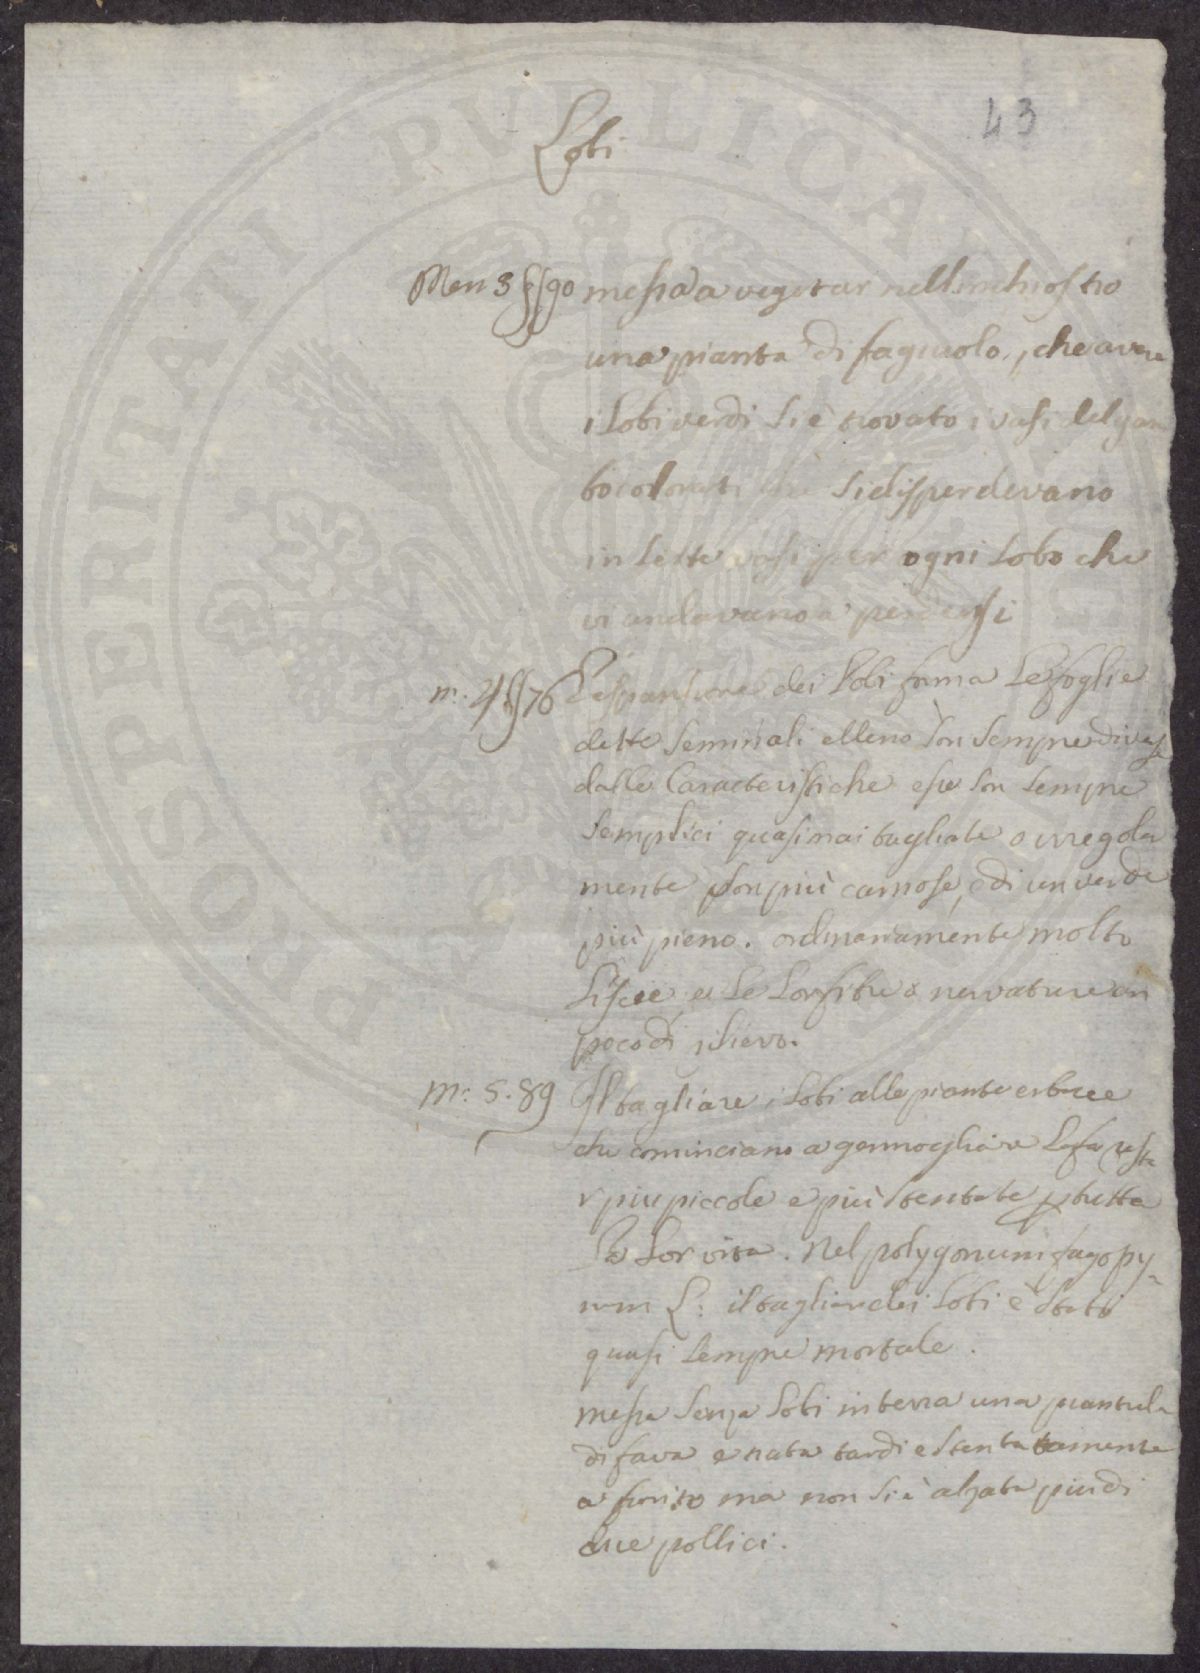 43
Lobi
Mem 3 § 90 messa a vegetar nell'inchiostro
una pianta di fagiuolo, che avea
i Lobi verdi si è trovato i vasi del gam
bo colorati che si disperdevano
in sette vasi per ogni Lobo che
vi andavano a perdersi
m. 4 § 76 L'espansione dei Lobi forma Le foglie
dette Seminali elleno son sempre diverse
dalle Caracteristiche esse son sempre
semplici quasi mai tagliate o irregolar
mente son più carnose, e di un verde
più pieno. ordinariamente molto
Liscee e Le Lor fibre o nervature an
poco di rilievo.
m: 5. 89 Il tagliare i Lobi alle piante erbacee
che cominciano a germogliare Le fa resta
r piu piccole e più stentate p tutta
La Lor vita. Nel polygonum fagopy-
rum L: il tagliar dei Lobi è stato
quasi sempre mortale.
messa senza Lobi in terra una piantula
di fava è nata tardi e stentatamente
a fiorito ma non si è alzata piu di
due pollici.
PROSPERITATI PVBLICAE